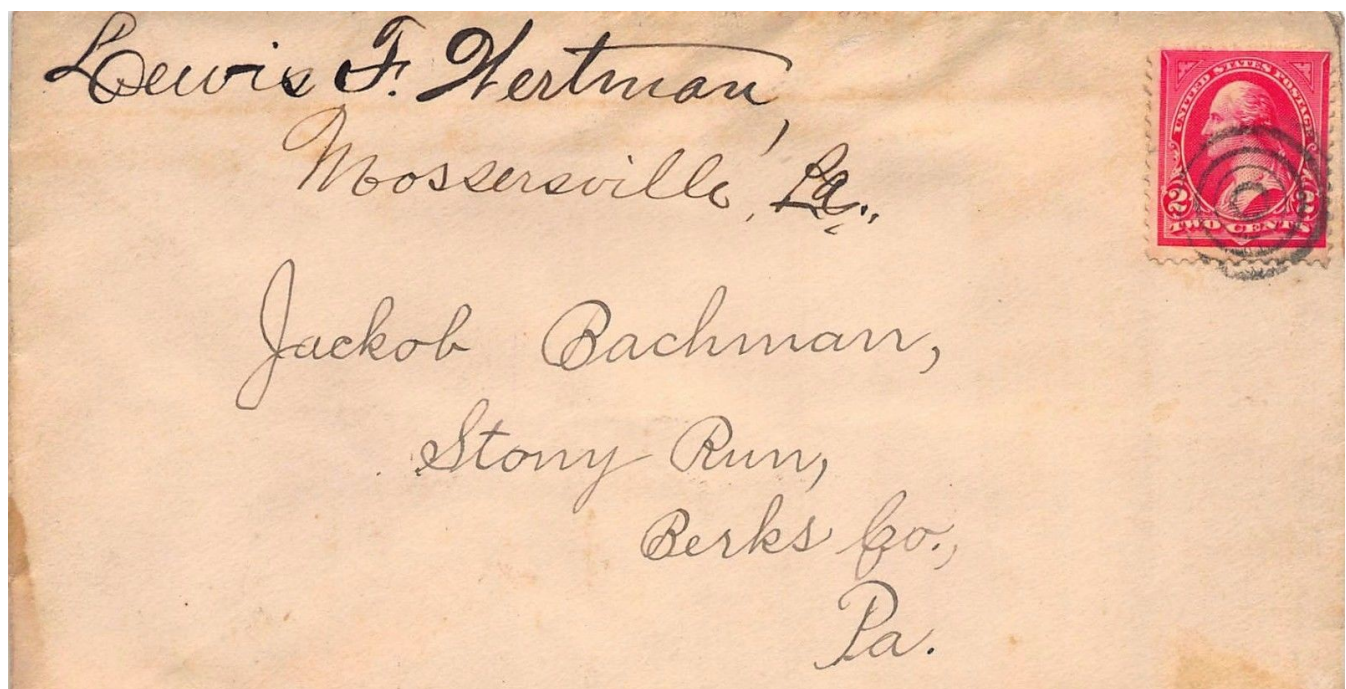 Lewis F. Wertman,
Mossersville, Pa.,
UNITED STATES POSTAGE
2 2
TWO CENTS
Jackob Bachman,
Stony Run,
Berks Co.,
Pa.